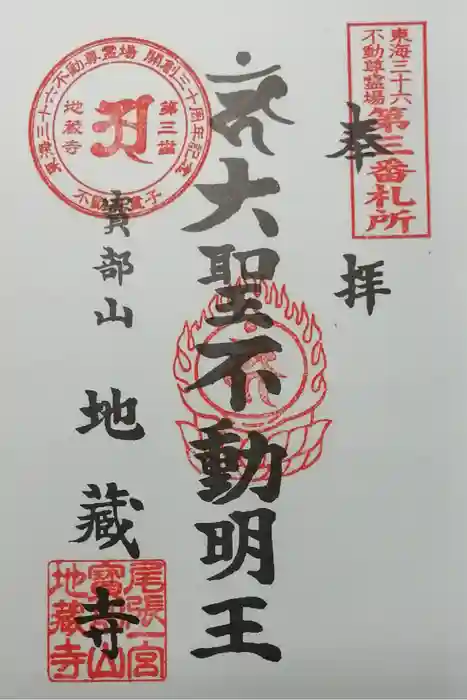 東海三十六
不動尊霊場
第三番札所
奉拝
大聖不動明王
東海三十六不動尊霊場 開創三十周年記念
第三番
地蔵寺
寳部山
地蔵寺
尾張一宮
寳部山
地蔵寺